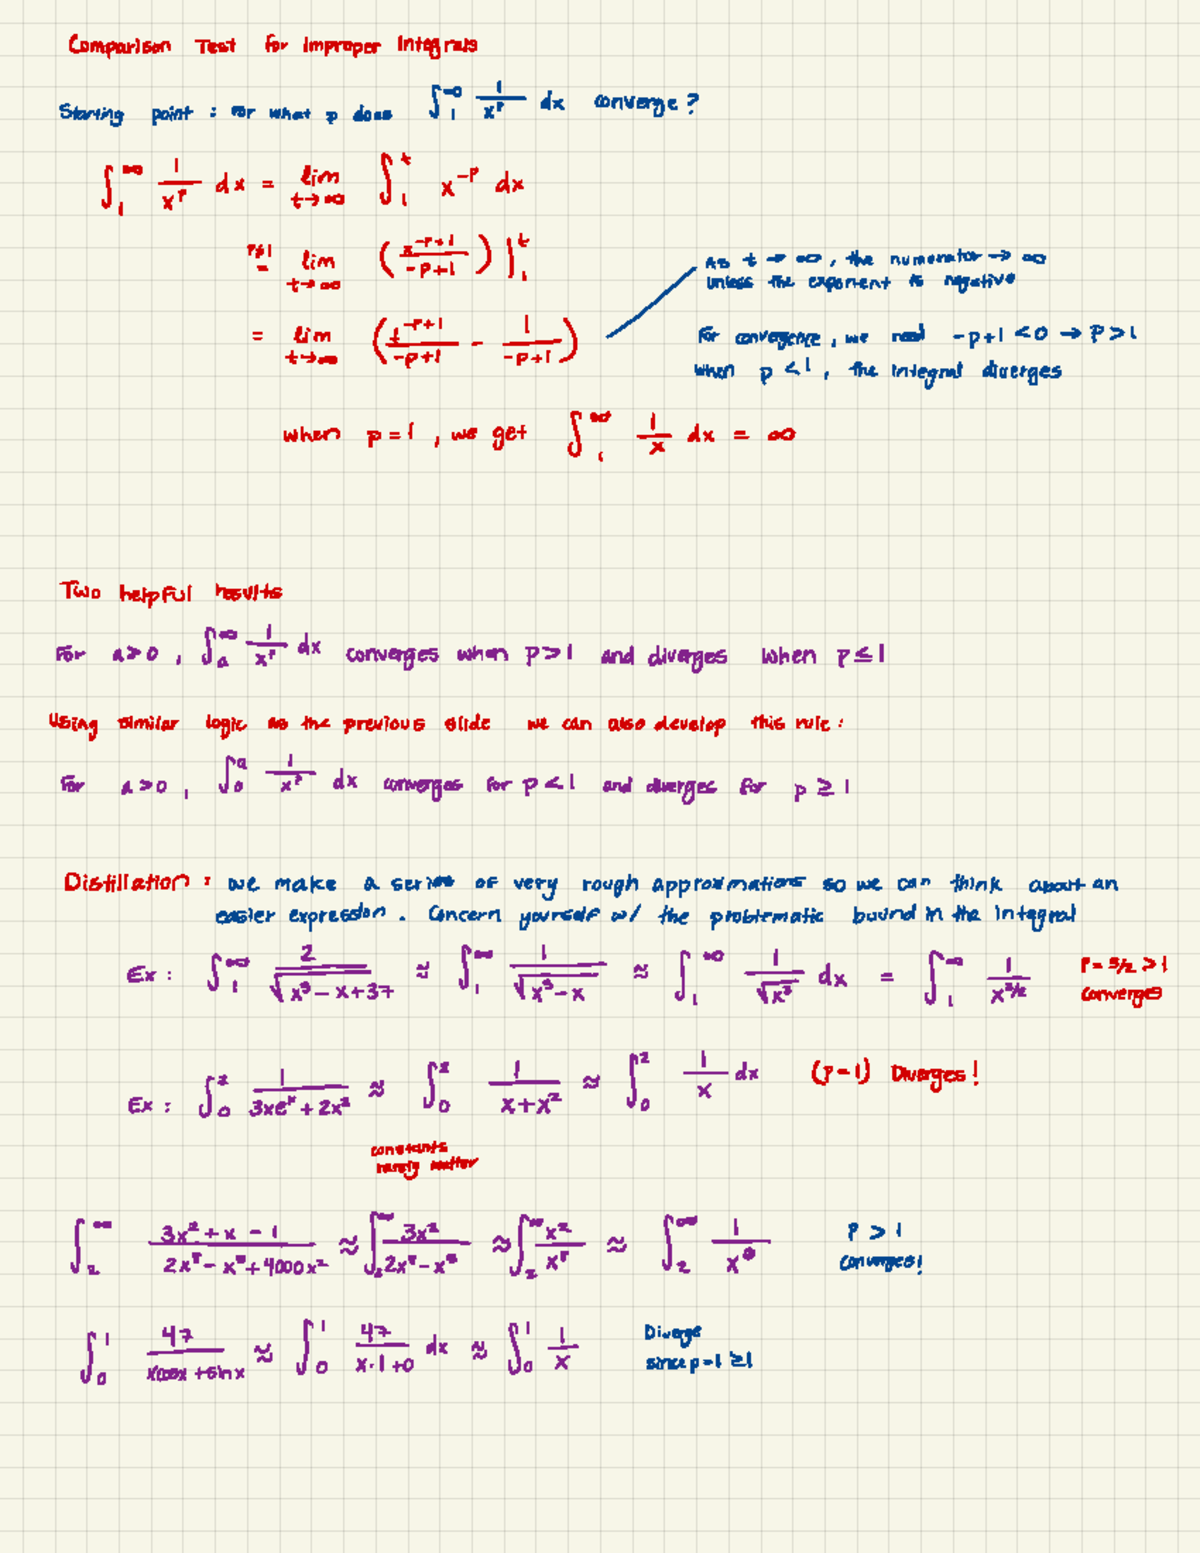 Comparison Test for Improper Integrals
Starting point : For what p does ∫₁^∞ 1/x^p dx converge?
∫₁^∞ 1/x^p dx = lim t→∞ ∫₁^t x^-p dx
p≠1 = lim t→∞ (x^(-p+1)/(-p+1)) |₁^t
As t → ∞, the numerator → ∞
unless the exponent is negative
= lim t→∞ (t^(-p+1)/(-p+1) - 1/(-p+1))
For convergence, we need -p+1 < 0 → p > 1
when p < 1, the integral diverges
when p = 1, we get ∫₁^∞ 1/x dx = ∞
Two helpful results
For a>0, ∫ₐ^∞ 1/x^p dx converges when p>1 and diverges when p≤1
Using similar logic as the previous slide we can also develop this rule:
For a>0, ∫₀^a 1/x^p dx converges for p<1 and diverges for p ≥ 1
Distillation : we make a series of very rough approximations so we can think about an
easier expression. Concern yourself w/ the problematic bound in the integral
Ex : ∫₁^∞ 2/√(x³-x+37) ≈ ∫₁^∞ 1/√(x³-x) ≈ ∫₁^∞ 1/√(x³) dx = ∫₁^∞ 1/x^(3/2) p = 3/2 > 1
converges
Ex : ∫₀² 1/(3xe^x + 2x²) ≈ ∫₀² 1/(x+x²) ≈ ∫₀² 1/x dx (p=1) Diverges!
constants
rarely matter
∫₂^∞ (3x²+x-1)/(2x -x +4000x²) ≈ ∫₂^∞ 3x²/(2x -x ) ≈ ∫₂^∞ x²/x ≈ ∫₂^∞ 1/x p > 1
converges!
∫₀¹ 47/(xcosx+sinx) ≈ ∫₀¹ 47/(x·1+0) dx ≈ ∫₀¹ 1/x Diverge
since p=1 ≥1